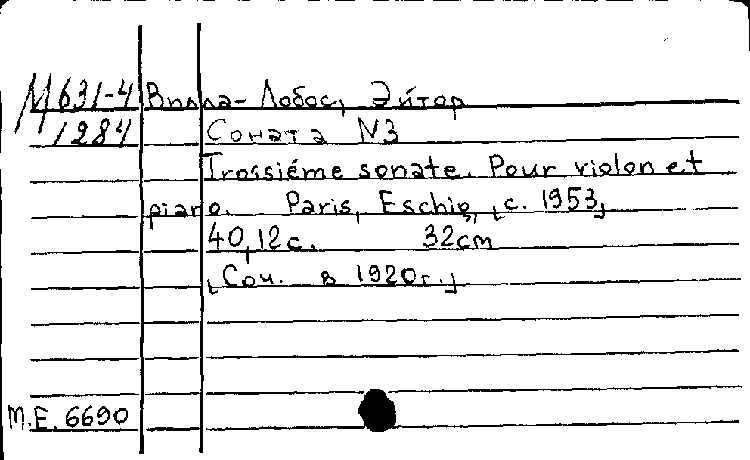 М631-4 Вилла-Лобос, Эйтор
1284 Соната N3
Troisséme sonate. Pour violon et
piano. Paris, Eschig, [c. 1953]
40,12c. 32cm
[Соч. в 1920г.]
М.Е. 6690